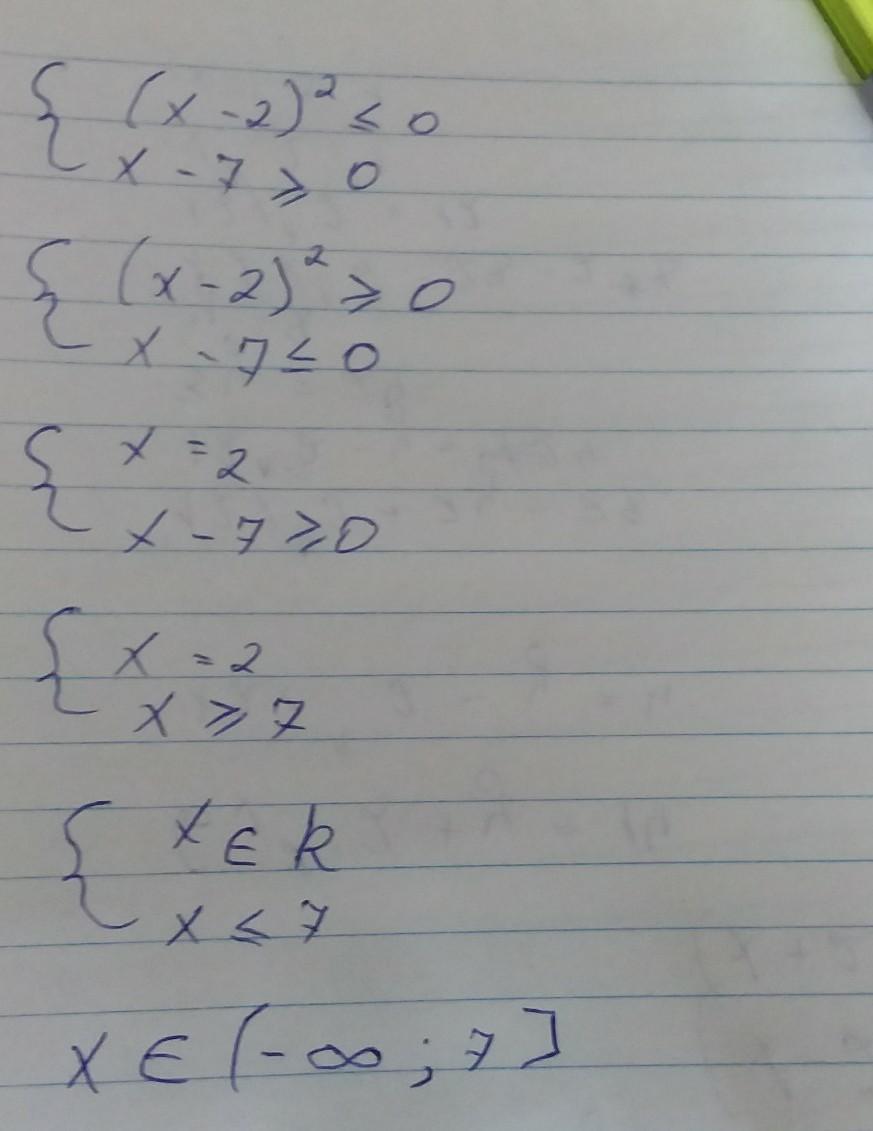 { (x - 2)² ≤ 0
x - 7 ⩾ 0
{ (x - 2)² ⩾ 0
x - 7 ≤ 0
{ x = 2
x - 7 ⩾ 0
{ x = 2
x ⩾ 7
{ x ∈ k
x ≤ 7
x ∈ (-∞ ; 7]